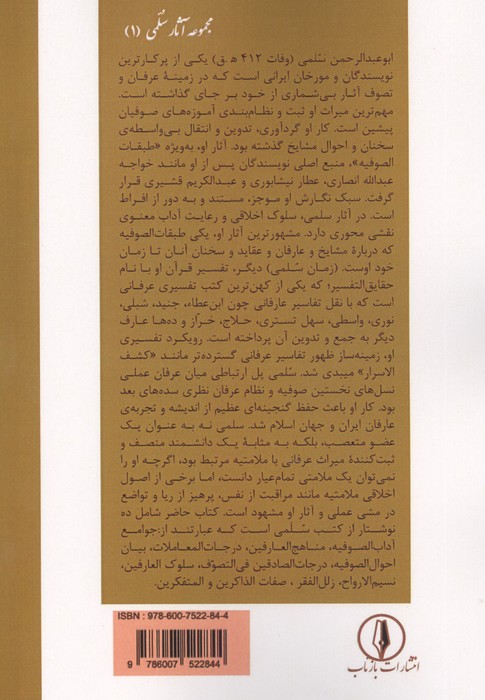 مجموعه آثار سُلَمی (۱)
ابوعبدالرحمن سُلمی (وفات ۴۱۲ ه‍.ق) یکی از پرکارترین
نویسندگان و مورخان ایرانی است که در زمینهٔ عرفان و
تصوف آثار بی‌شماری از خود بر جای گذاشته است.
مهم‌ترین میراث او ثبت و نظام‌بندی آموزه‌های صوفیان
پیشین است. کار او گردآوری، تدوین و انتقال بی‌واسطه‌ی
سخنان و احوال مشایخ گذشته بود. آثار او، به‌ویژه «طبقات
الصوفیه»، منبع اصلی نویسندگان پس از او مانند خواجه
عبدالله انصاری، عطار نیشابوری و عبدالکریم قشیری قرار
گرفت. سبک نگارش او موجز، مستند و به دور از افراط
است. در آثار سلمی، سلوک اخلاقی و رعایت آداب معنوی
نقشی محوری دارد. مشهورترین آثار او، یکی طبقات‌الصوفیه
که درباره مشایخ و عارفان و عقاید و سخنان آنان تا زمان
خود اوست. (زمان سُلمی) دیگر، تفسیر قرآن او با نام
حقایق‌التفسیر؛ که یکی از کهن‌ترین کتب تفسیری عرفانی
است که با نقل تفاسیر عارفانی چون ابن‌عطاء، جنید، شبلی،
نوری، واسطی، سهل تستری، حلاج، خرّاز و ده‌ها عارف
دیگر به جمع و تدوین آن پرداخته است. رویکرد تفسیری
او، زمینه‌ساز ظهور تفاسیر عرفانی گسترده‌تر مانند «کشف
الاسرار» میبدی شد. سُلمی پل ارتباطی میان عرفان عملی
نسل‌های نخستین صوفیه و نظام عرفان نظری سده‌های بعد
بود. کار او باعث حفظ گنجینه‌ای عظیم از اندیشه و تجربه‌ی
عارفان ایران و جهان اسلام شد. سلمی نه به عنوان یک
عضو متعصب، بلکه به مثابهٔ یک دانشمند منصف و
ثبت‌کنندهٔ میراث عرفانی با ملامتیه مرتبط بود، اگرچه او را
نمی‌توان یک ملامتی تمام‌عیار دانست، اما برخی از اصول
اخلاقی ملامتیه مانند مراقبت از نفس، پرهیز از ریا و تواضع
در مشی عملی و آثار او مشهود است. کتاب حاضر شامل ده
نوشتار از کتب سُلمی است که عبارتند از: جوامع
آداب‌الصوفیه، مناهج‌العارفین، درجات‌المعاملات، بیان
احوال‌الصوفیه، درجات‌الصادقین فی‌التصوّف، سلوک العارفین،
نسیم‌الارواح، زلل‌الفقر ، صفات الذاکرین و المتفکرین.
ISBN : 978-600-7522-84-4
9 786007 522844
انتشارات بازتاب